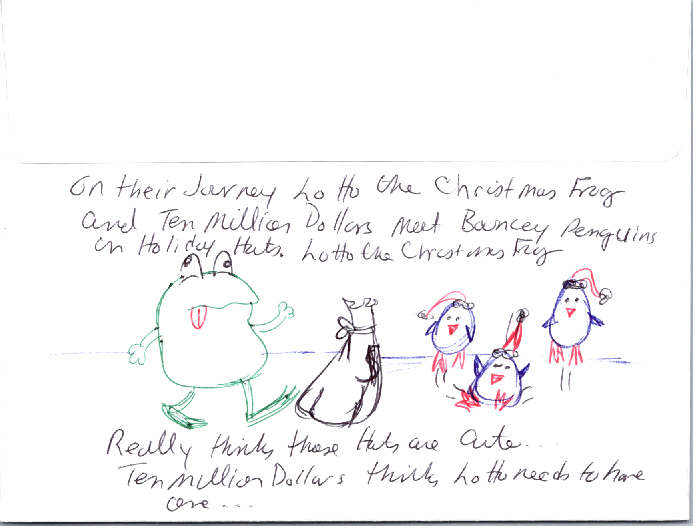 On their Journey Lotto the Christmas Frog
and Ten Million Dollars Meet Bouncey Penguins
in Holiday Hats. Lotto the Christmas Frog
Really thinks those Hats are Cute...
Ten Million Dollars thinks Lotto needs to have
one...